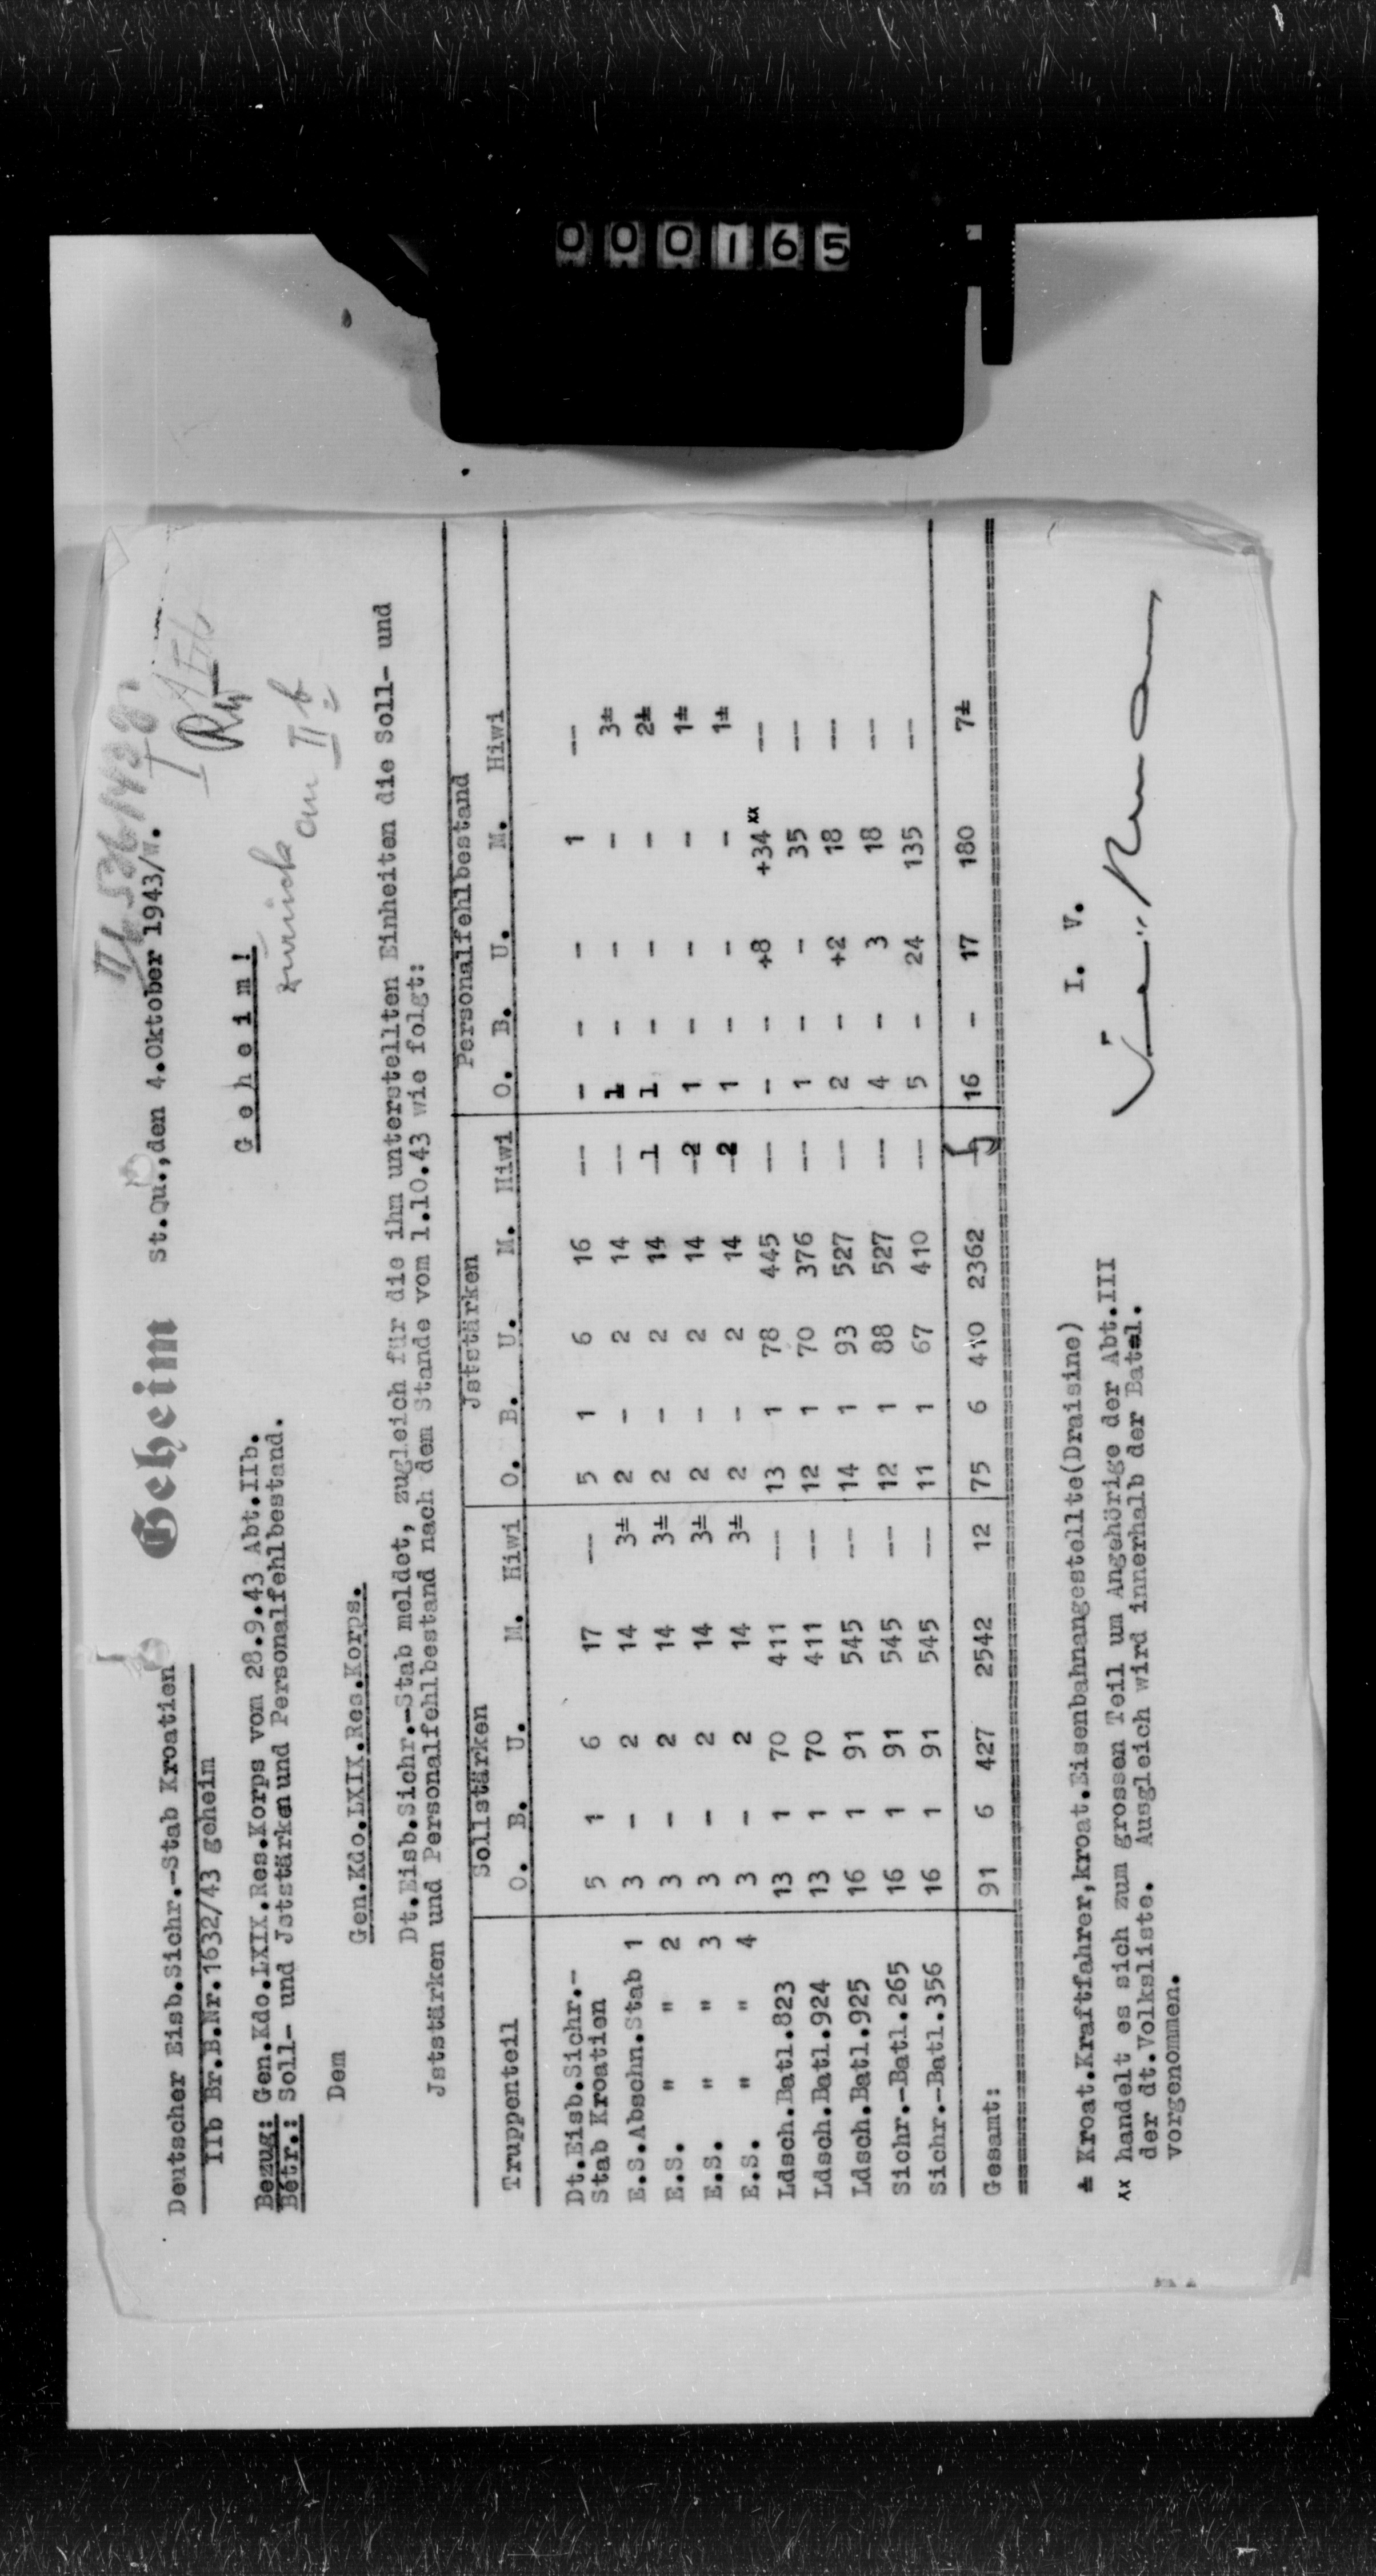 000165
IIb 536/43 g.
Geheim
Deutscher Eisb.Sichr.-Stab Kroatien St.Qu.,den 4.Oktober 1943/W.
IIb Br.B.Nr.1632/43 geheim
G e h e i m !
zurück an IIb
Bezug: Gen.Kdo.LXIX.Res.Korps vom 28.9.43 Abt.IIb.
Betr.: Soll- und Jststärken und Personalfehlbestand.
Dem
Gen.Kdo.LXIX.Res.Korps.
Dt.Eisb.Sichr.-Stab meldet, zugleich für die ihm unterstellten Einheiten die Soll- und
Jststärken und Personalfehlbestand nach dem Stande vom 1.10.43 wie folgt:
Truppenteil Sollstärken Jststärken Personalfehlbestand
O. B. U. M. Hiwi O. B. U. M. Hiwi O. B. U. M. Hiwi
Dt.Eisb.Sichr.-
Stab Kroatien 5 1 6 17 -- 5 1 6 16 -- - - - 1 --
E.S.Abschn.Stab 1 3 - 2 14 3± 2 - 2 14 -- 1 - - - 3±
E.S. " " 2 3 - 2 14 3± 2 - 2 14 1 1 - - - 2±
E.S. " " 3 3 - 2 14 3± 2 - 2 14 2 1 - - - 1±
E.S. " " 4 3 - 2 14 3± 2 - 2 14 2 1 - - - 1±
Ldsch.Batl.823 13 1 70 411 -- 13 1 78 445 -- - - +8 +34 xx --
Ldsch.Batl.924 13 1 70 411 -- 12 1 70 376 -- 1 - - 35 --
Ldsch.Batl.925 16 1 91 545 -- 14 1 93 527 -- 2 - +2 18 --
Sichr.-Batl.265 16 1 91 545 -- 12 1 88 527 -- 4 - 3 18 --
Sichr.-Batl.356 16 1 91 545 -- 11 1 67 410 -- 5 - 24 135 --
Gesamt: 91 6 427 2542 12 75 6 410 2362 5 16 - 17 180 7±
± Kroat.Kraftfahrer,kroat.Eisenbahnangestellte(Draisine)
xx handelt es sich zum grossen Teil um Angehörige der Abt.III
der dt.Volksliste. Ausgleich wird innerhalb der Batel.
vorgenommen.
I. V.